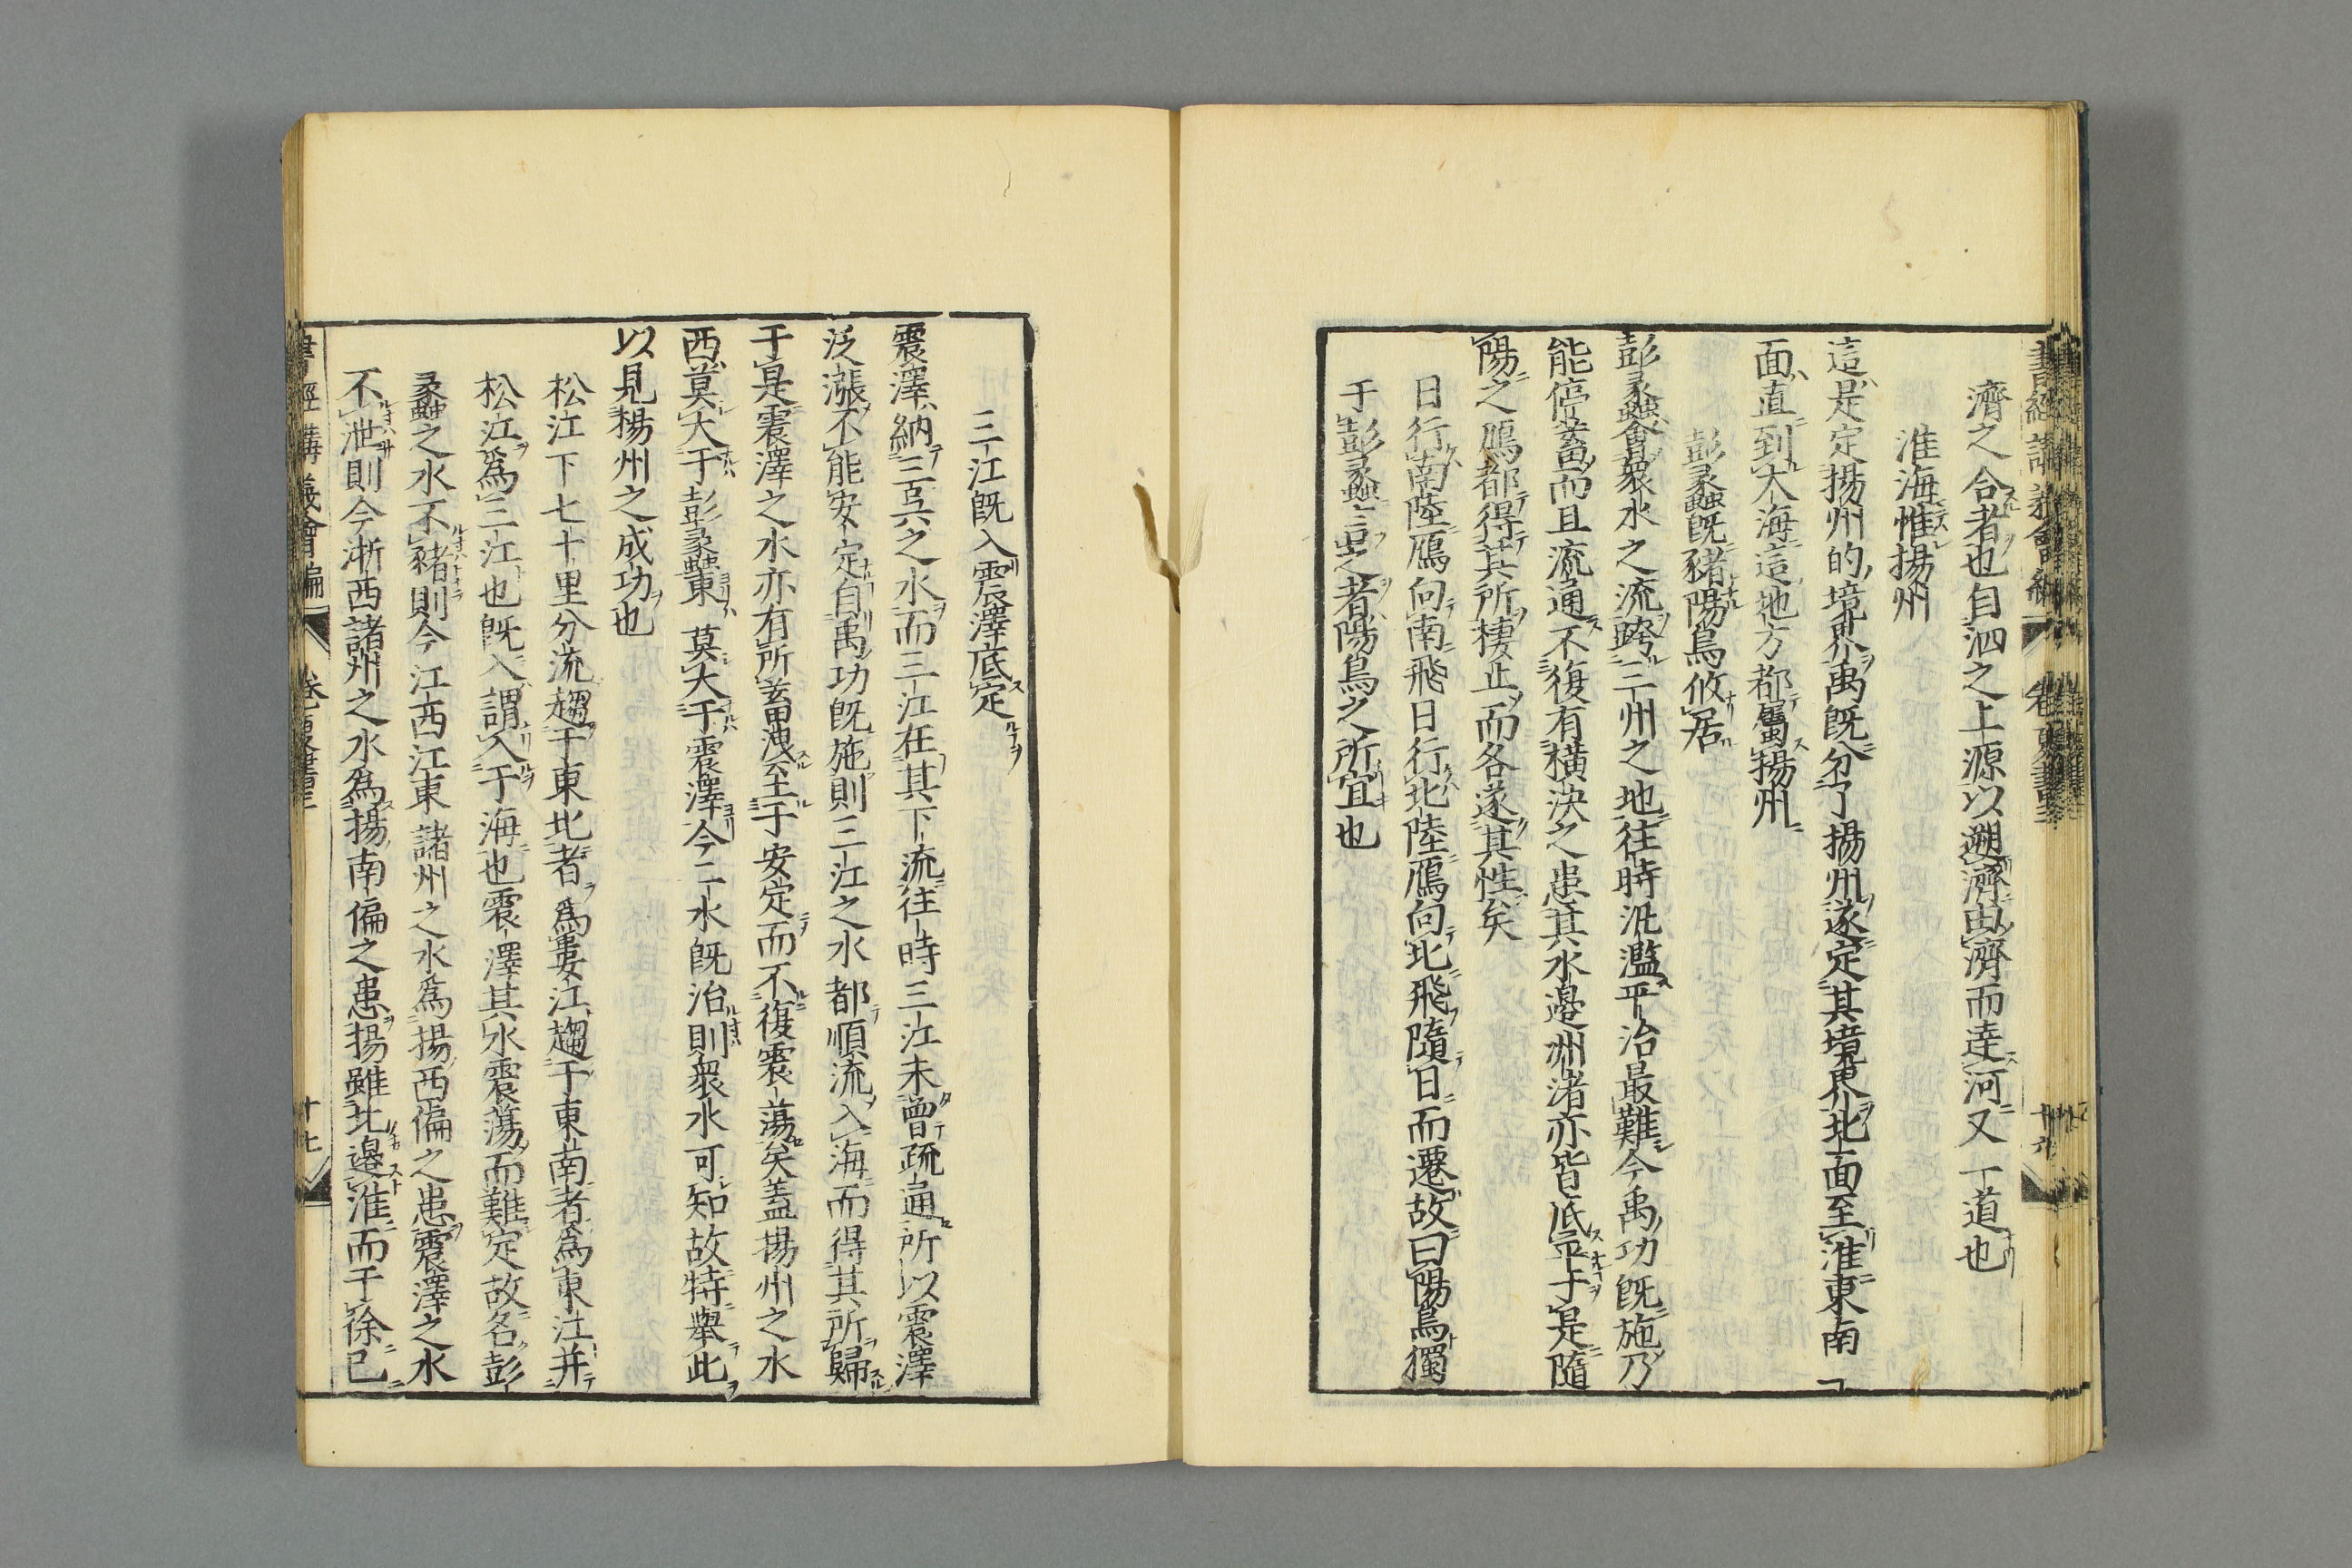 濟之合者也自泗之上源以遡濟由濟而達河又一道也
淮海惟揚州
這是定揚州的境界禹既分了揚州遂定其境界北面至淮東南
面直到大海這地方都屬揚州
彭蠡既豬陽鳥攸居
彭蠡會衆水之流跨三州之地往時汎濫平治最難今禹功既施乃
能停蓄而且流通不復有橫決之患其水邊洲渚亦皆底平于是隨
陽之鴈都得其所棲止而各遂其性矣
日行南陸鴈向南飛日行北陸鴈向北飛隨日而遷故曰陽鳥獨
于彭蠡言之者陽鳥之所宜也
三江既入震澤底定
震澤納三吳之水而三江在其下流往時三江未曾疏通所以震澤
泛漲不能安定自禹功既施則三江之水都順流入海而得其所歸
于是震澤之水亦有所蓄洩至于安定而不復震蕩矣蓋揚州之水
西莫大于彭蠡東莫大于震澤今二水既治則衆水可知故特舉此
以見揚州之成功也
松江下七十里分流趨于東北者爲婁江趨于東南者爲東江并
松江爲三江也既入謂入于海也震澤其水震蕩而難定故名彭
蠡之水不豬則今江西江東諸州之水爲揚西偏之患震澤之水
不泄則今浙西諸州之水爲揚南偏之患揚雖北邊淮而于徐已
書經講義會編 卷 夏書 十七